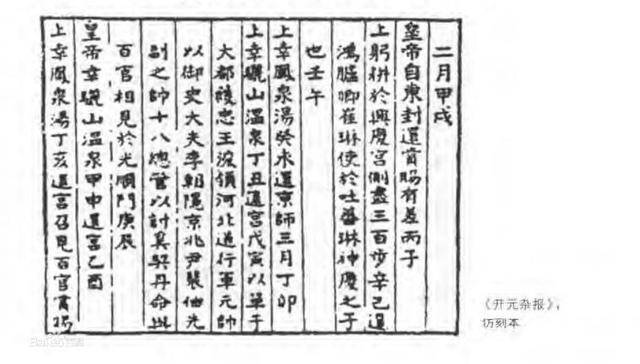 二月甲戌
皇帝自東封還賞賜有差丙子
上躬耕於興慶宮側盡三百步辛已遣
鴻臚卿崔琳使於吐蕃琳神慶之子
也壬午
上幸鳳泉湯癸未還京師三月丁卯
上幸驪山温泉丁丑還宮戊寅以單于
大都護忠王浚領河北道行軍元帥
以御史大夫李朝隱京兆尹裴伷先
副之帥十八總管以討奚契丹命與
百官相見於光順門庚辰
皇帝幸驪山温泉甲申還宮乙酉
上幸鳳泉湯丁亥還宮召見百官賞賜
《开元杂报》，
仿刻本
Baidu百科